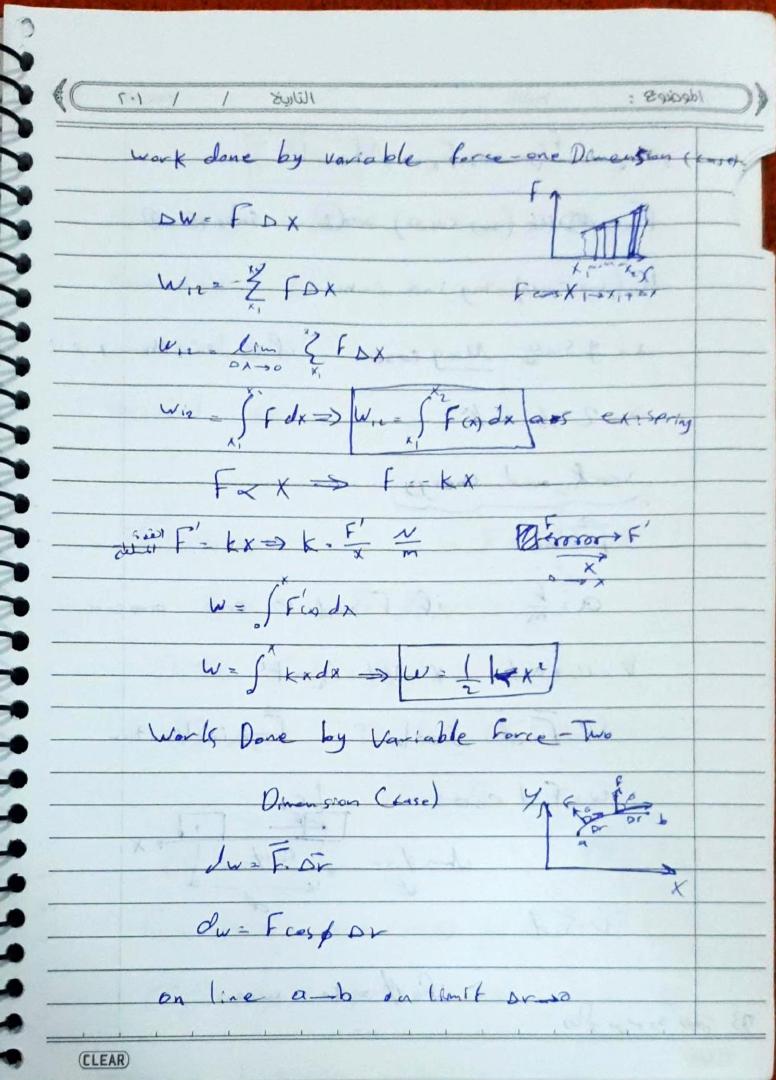 الموضوع : التاريخ / / ٢٠١
Work done by variable force-one Dimension (case)
ΔW = F Δx
F
x₁ --- x₂ x
W₁₂ = Σ F Δx
x₁
F cos x₁→x₁+Δx
W₁₂ = lim Σ F Δx
Δx→0 x₁
W₁₂ = ∫ F dx ⇒ W₁₂ = ∫ F(x) dx ex: spring
x₁ x₂ x₁
F ∝ x ⇒ F = -kx
القوة F' = kx ⇒ k = F'/x N/m
F F'
x
0 → x
W = ∫₀ˣ F'(x) dx
W = ∫₀ˣ kx dx ⇒ W = 1/2 k x²
Work Done by Variable force-Two
Dimension (case)
y
F F
Δr Δr
a b
x
dw = F⃗. Δr⃗
dw = F cosϕ Δr
on line a→b on limit Δr→0
CLEAR